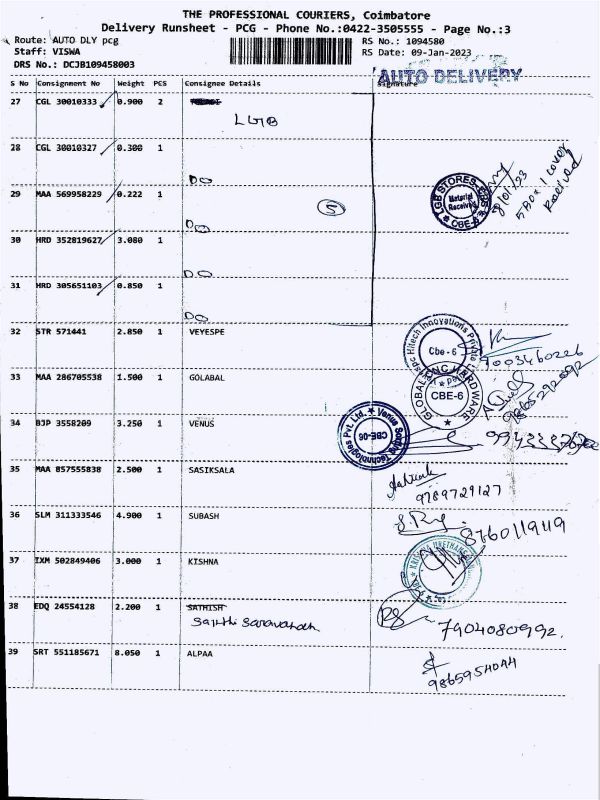 THE PROFESSIONAL COURIERS, Coimbatore
Delivery Runsheet - PCG - Phone No.:0422-3505555 - Page No.:3
Route: AUTO DLY pcg RS No.: 1094580
Staff: VISWA RS Date: 09-Jan-2023
DRS No.: DCJB109458003
AUTO DELIVERY
S No Consignment No Weight PCS Consignee Details Signature
27 CGL 30010333 0.900 2
LGB
28 CGL 30010327 0.300 1
DO
LGB STORES
Material Received
CBE-6
5 Box 1 cover Received
29 MAA 569958229 0.222 1
5
DO
30 HRD 352819627 3.080 1
DO
31 HRD 305651103 0.850 1
DO
32 STR 571441 2.850 1 VEYESPE
Hitech Innovations Private
Cbe - 6
9003460226
33 MAA 286705538 1.500 1 GOLABAL
GLOBAL CNC HARDWARE
CBE-6
9865292092
34 BJP 3558209 3.250 1 VENUS
Technologies Pvt. Ltd. Venus
CBE-06
35 MAA 857555838 2.500 1 SASIKSALA
9789729127
36 SLM 311333546 4.900 1 SUBASH
8760119119
37 IXM 502849406 3.000 1 KISHNA
38 EDQ 24554128 2.200 1 SATHISH
Sakthi Saravanan
7904080992.
39 SRT 551185671 8.050 1 ALPAA